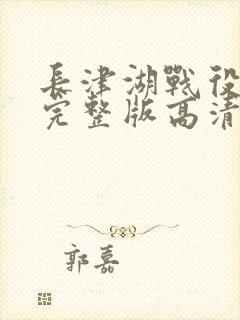 長津湖戰役
完整版高清
郭嘉